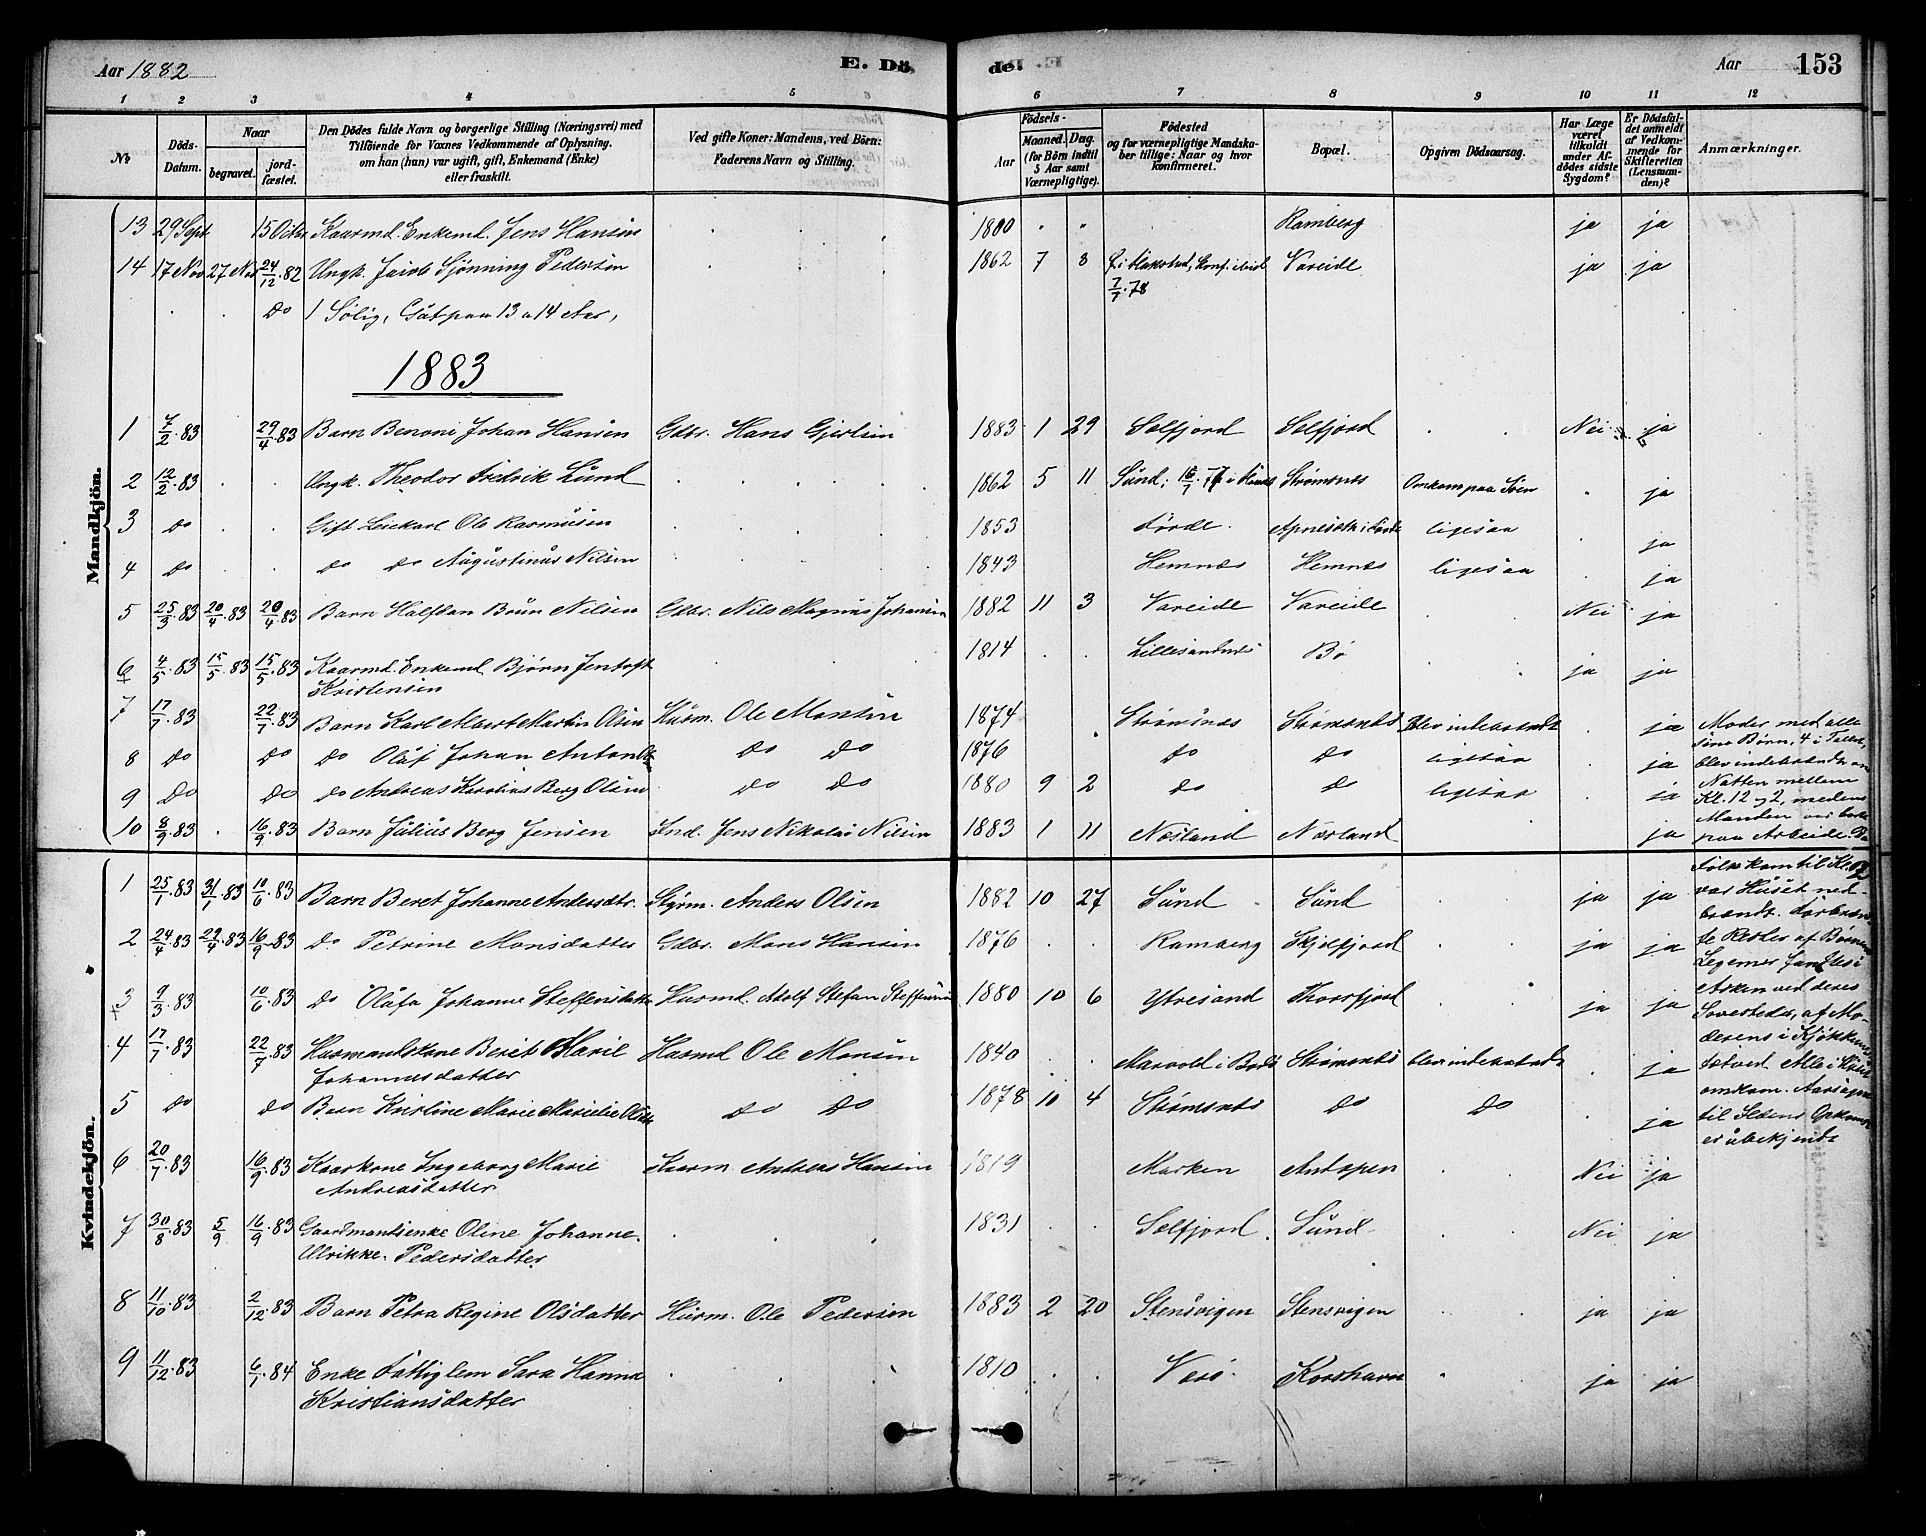 Aar 1882
E. Dö
de.
Aar
153
1 2 3 4 5 6 7 8 9 10 11 12
No
Döds-Datum.
Naar
begravet.
jord-fæstet.
Den Dödes fulde Navn og borgerlige Stilling (Næringsvei) med
Tilføiende for Voxnes Vedkommende af Oplysning.
om han (hun) var ugift, gift, Enkemand (Enke)
eller fraskilt.
Ved gifte Koner: Mandens, ved Börn:
Faderens Navn og Stilling.
Födsels-
Aar
Maaned. Dag.
(for Börn indtil
5 Aar samt
Værnepligtige).
Födested
og for værnepligtige Mandska-
ber tillige: Naar og hvor
konfirmeret.
Bopæl.
Opgiven Dödsaarsag.
Har Læge
været
tilkaldt
under Af-
dödes sidste
Sygdom?
Er Dödsfal-
det anmeldt
af Vedkom-
mende for
Skifteretten
(Lensman-
den)?
Anmærkninger.
Mandkjön.
13 29 Sept 15 Octbr Kaarmd. Enkemd. Jens Hansen 1800 Ramberg ja ja
14 17 Nov 27 Nov 24/12 82 Ungk. Jacob Sjönning Pedersen 1862 7 8 Konf. ibid 7/7.78 Vareide ja ja
Do 1 Sölig, Gut paa 13 a 14 Aar,
1883
1 7/2.83 29/4.83 Barn Benoni Johan Hansen Gdbr. Hans Gjertsen 1883 1 29 Selfjord Selfjord Nei ja
2 12/2.83 Ungk. Theodor Fredrik Lund 1862 5 11 Sund; Strømsnes Omkom paa Søen ja
3 Do Gift Leiekarl Ole Rasmusen 1853 Førde ligesaa ja
4 Do Do Do Augustinus Nilsen 1843 Hemnes Hemnes ligesaa ja
5 25/3.83 20/4.83 20/4.83 Barn Halfdan Brun Nilsen Gdbr. Nils Magnus Johansen 1882 11 3 Vareide Vareide Nei ja
6 4/5.83 15/5.83 15/5.83 Kaarmd. Enkemd Bjørn Jentoft
Kristensen 1814 Bø ja ja
7 17/7.83 22/7.83 Barn Karl Albert Martin Olsen Husm. Ole Monsen 1874 Strømsnes Strømsnes Blev indebrændt ja
8 Do Do Do Olaf Johan Anton Do Do 1876 Do Do ligesaa ja
9 Do Do Do Andreas Berg Olsen Do Do 1880 9 2 Do Do ligesaa ja
10 8/9.83 16/9.83 Barn Julius Berg Jensen Ind. Jens Nikolai Nilsen 1883 1 11 Nesland Nesland ja
Moder med alle
sine Børn, 4 i Tallet,
blev indebrændt om
Natten mellem
Kl. 12 og 2, medens
Manden var borte
paa Arbeide. Da
Folk kom til Kl.
var Huset ned-
brændt. Forbrænd-
te Rester af Børnenes
Legemer fandtes i
Asken ved deres
Sovesteder, af Mo-
derens i Kjøkkenet
tætved. Alle i Huset
omkom. Aarsagen
til Ildens Opkomst
er ubekjendt
Kvindekjön.
1 25/1.83 31/1.83 10/6.83 Barn Beret Johanne Andersdtr. Styrm. Anders Olsen 1882 10 27 Sund Sund ja ja
2 24/4.83 29/4.83 16/9.83 Do Petrine Monsdatter Gdbr. Mons Hansen 1876 Ramberg Skjelfjord ja ja
3 9/3.83 10/6.83 Do Olufa Johanne Steffensdatter Husmd. Adolf Stefan Steffensen 1880 10 6 Ytresand Thorsfjord ja ja
4 17/7.83 22/7.83 Husmandskone Beret Marie
Johannesdatter Husmd Ole Monsen 1840 Strømsnes blev indebrændt ja
5 Do Do Barn Kristine Marie Do Do 1878 10 4 Strømsnes Do Do ja
6 20/7.83 16/9.83 Kaarkone Ingeborg Marie
Andreasdatter Kaarm. Andreas Hansen 1819 Marken Nei ja
7 30/8.83 5/9 16/9.83 Gaardmandsenke Oline Johanne
Ulrikke Pedersdatter 1831 Selfjord Sund Nei ja
8 11/10.83 2/12.83 Barn Petra Regine Olsdatter Husm. Ole Pedersen 1883 2 20 Stensvigen Stensvigen ja ja
9 11/12.83 6/1.84 Enke Fattiglem Sara Hanna
Kristiansdatter 1810 Værø Korshavn ja ja